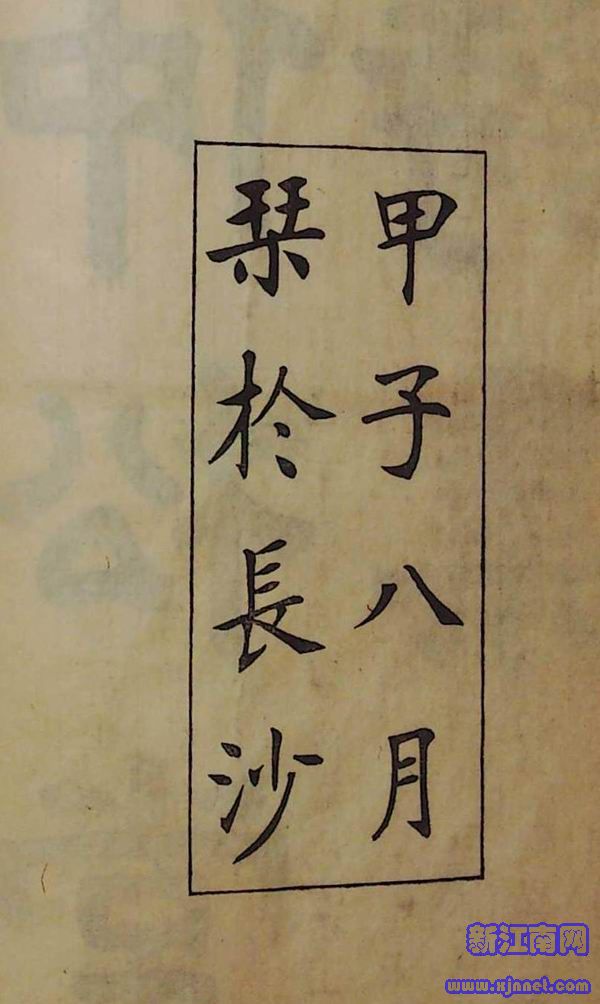 甲子八月
琹於長沙
新江南网
www.xjnnet.com